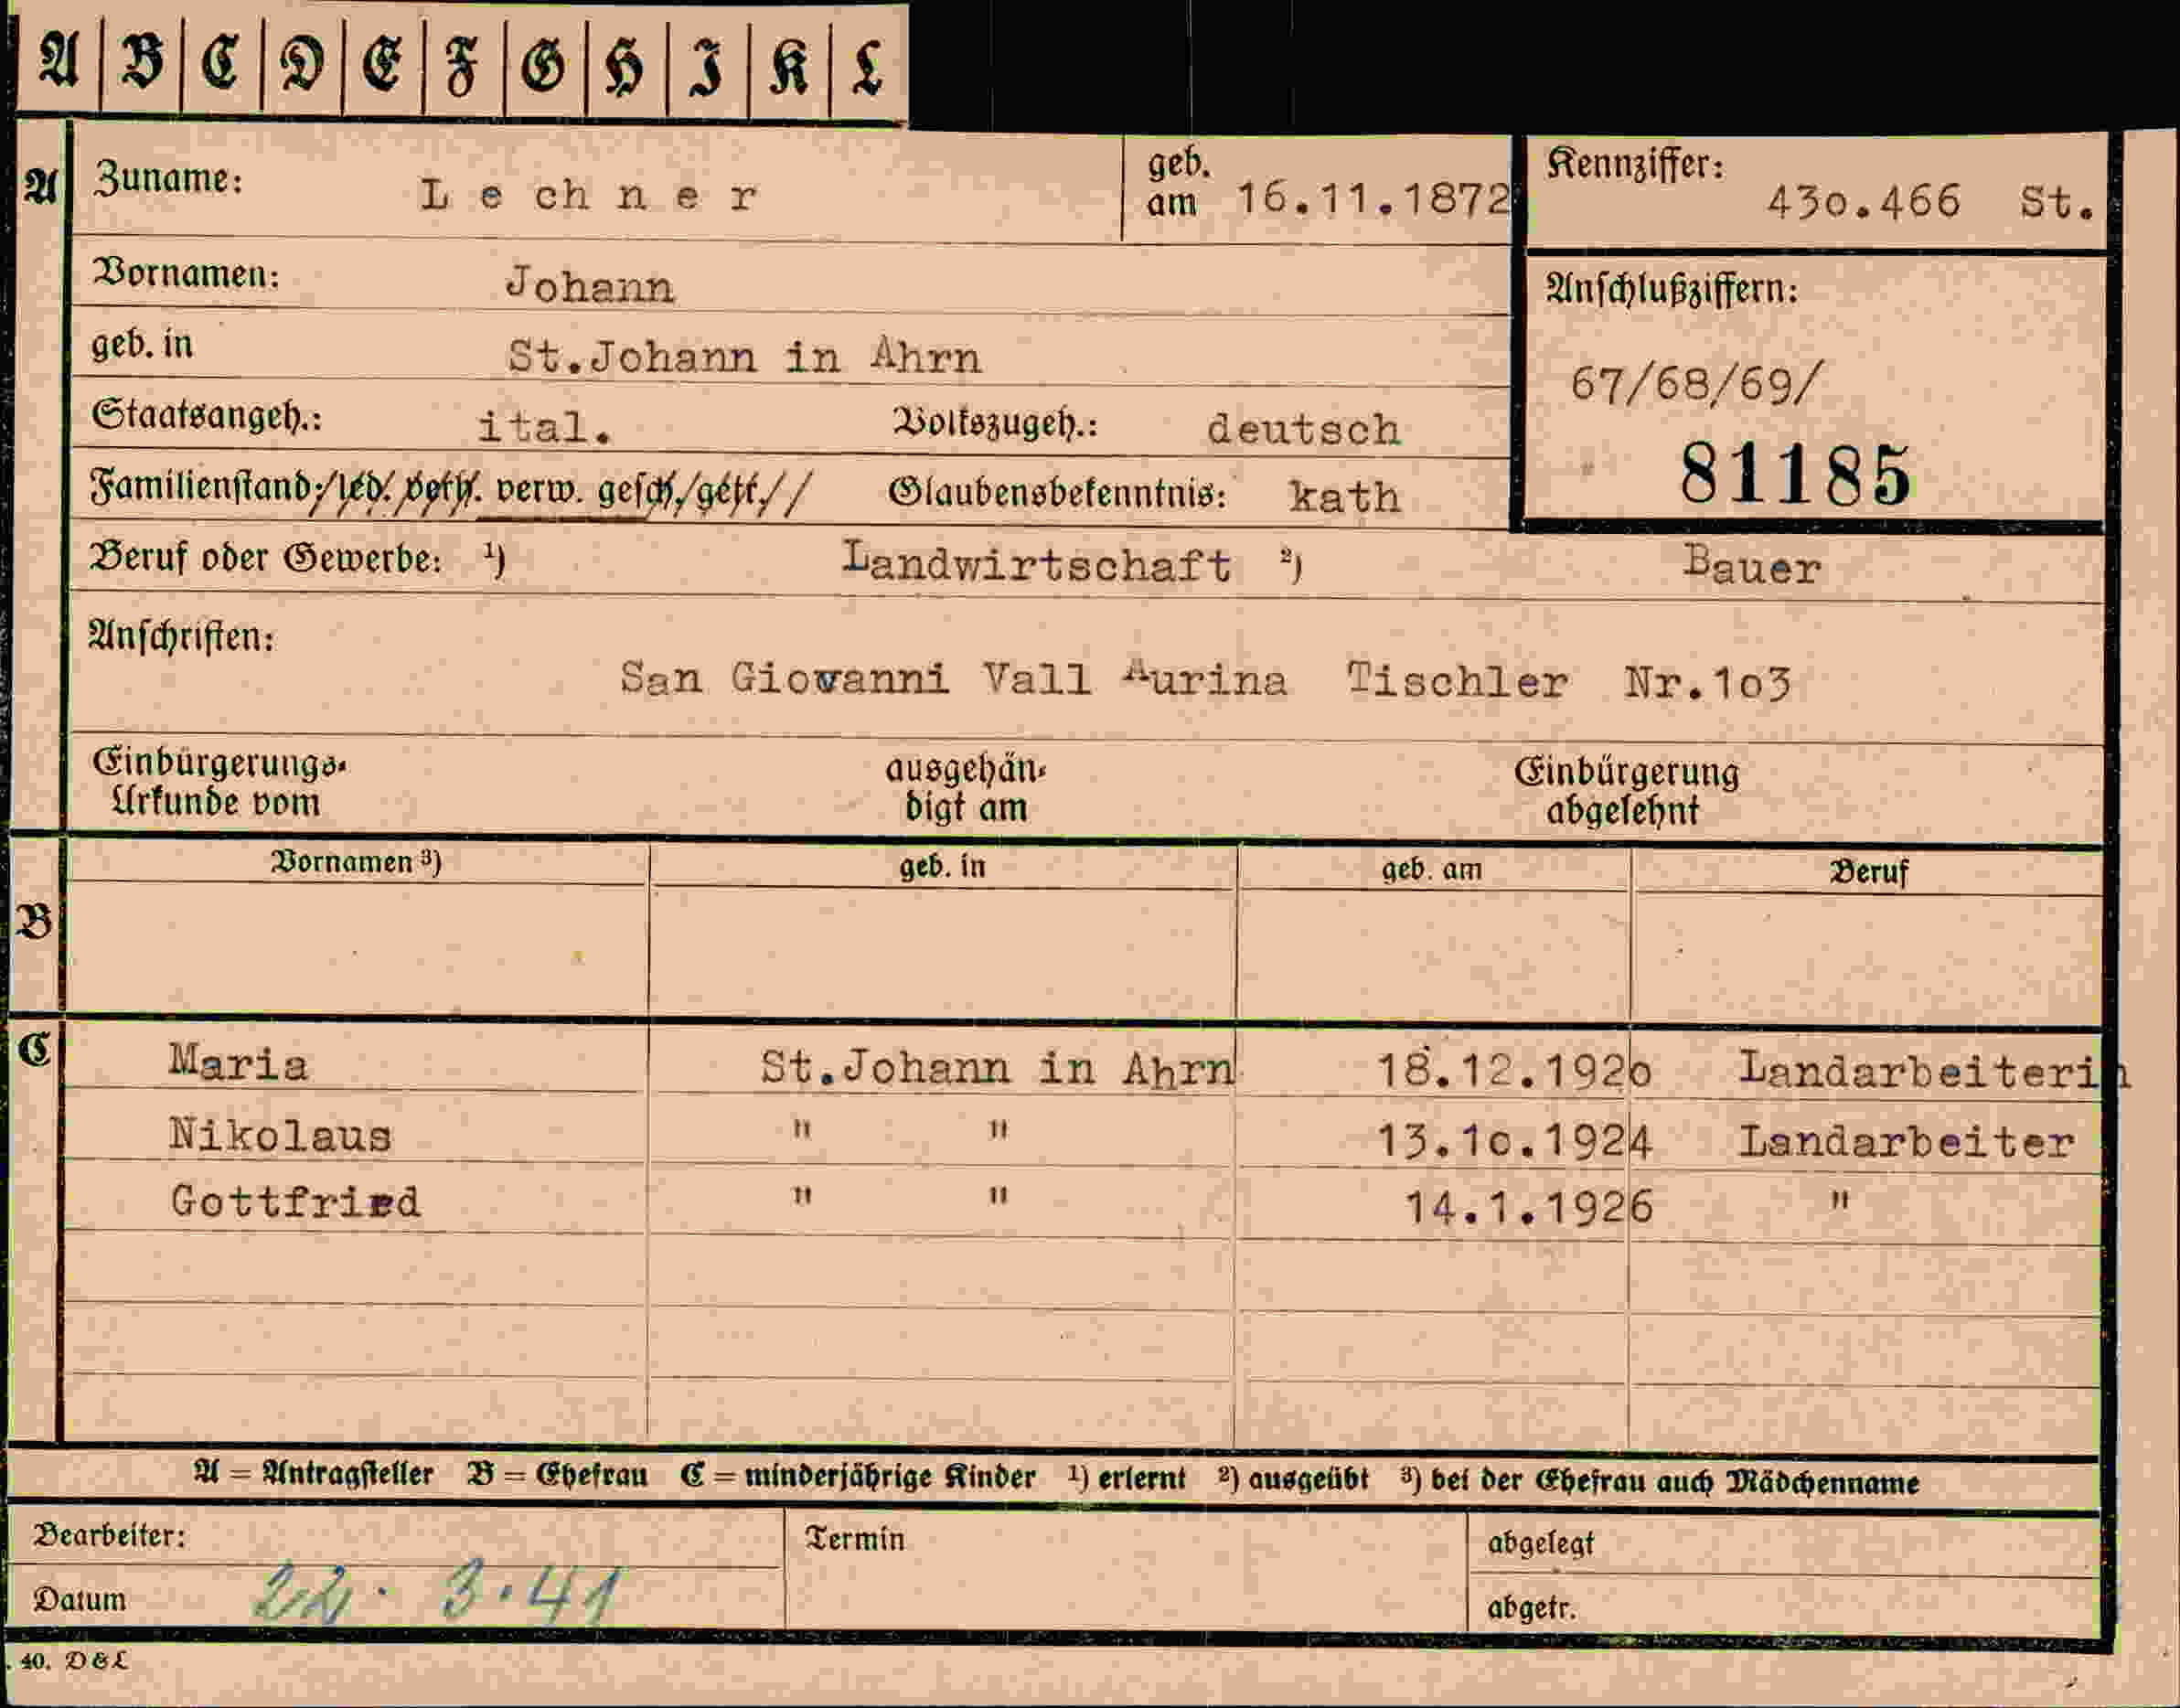 A B C D E F G H I K L
A Zuname: Lechner geb. am 16.11.1872 Kennziffer: 430.466 St.
Vornamen: Johann
geb. in St.Johann in Ahrn
Anschlußziffern:
67/68/69/
81185
Staatsangeh.: ital. Volkszugeh.: deutsch
Familienstand: led. verh. verw. gesch. getr. Glaubensbekenntnis: kath
Beruf oder Gewerbe: ¹) Landwirtschaft ²) Bauer
Anschriften:
San Giovanni Vall Aurina Tischler Nr.1o3
Einbürgerungs- ausgehän- Einbürgerung
Urkunde vom digt am abgelehnt
Vornamen ³) geb. in geb. am Beruf
B
C Maria St.Johann in Ahrn 18.12.192o Landarbeiterin
Nikolaus " " 13.1o.1924 Landarbeiter
Gottfried " " 14.1.1926 "
A = Antragsteller B = Ehefrau C = minderjährige Kinder ¹) erlernt ²) ausgeübt ³) bei der Ehefrau auch Mädchenname
Bearbeiter: Termin abgelegt
Datum 22. 3.41 abgetr.
. 40. D & L